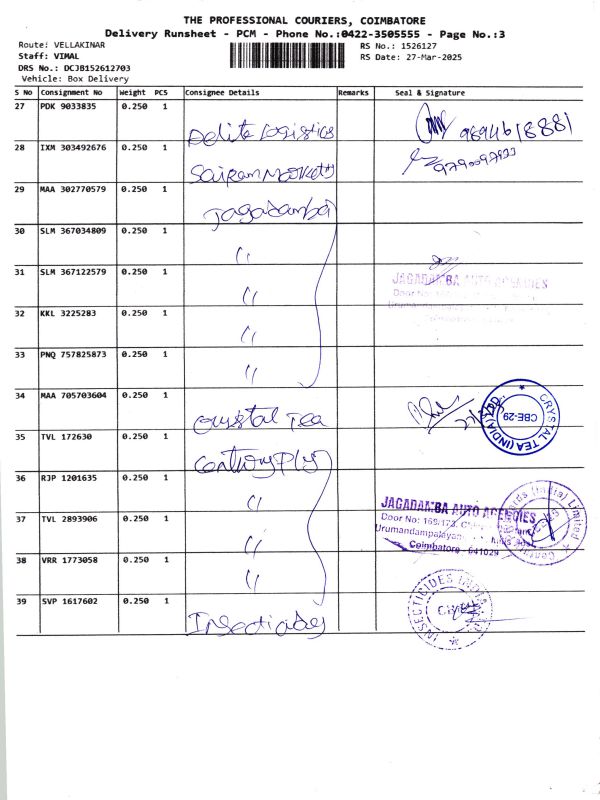 THE PROFESSIONAL COURIERS, COIMBATORE
Delivery Runsheet - PCM - Phone No.:0422-3505555 - Page No.:3
Route: VELLAKINAR
Staff: VIMAL
DRS No.: DCJB152612703
Vehicle: Box Delivery
RS No.: 1526127
RS Date: 27-Mar-2025
S No Consignment No Weight PCS Consignee Details Remarks Seal & Signature
27 PDK 9033835 0.250 1
Delite Logistics 9894618881
28 IXM 303492676 0.250 1
Sairam
29 MAA 302770579 0.250 1
Jagadambal
30 SLM 367034809 0.250 1
"
31 SLM 367122579 0.250 1
" JAGADAMBA AUTO AGENCIES
Door No:
32 KKL 3225283 0.250 1
"
33 PNQ 757825873 0.250 1
"
34 MAA 705703604 0.250 1
Crystal Tea CRYSTAL TEA (INDIA)
CBE-29
35 TVL 172630 0.250 1
Century Ply
36 RJP 1201635 0.250 1
" JAGADAMBA AUTO AGENCIES
37 TVL 2893906 0.250 1
Door No: 169/173,
Urumandampalayam
Coimbatore - 641029
(India) Limited
"
38 VRR 1773058 0.250 1
"
39 SVP 1617602 0.250 1
INSECTICIDES INDIA